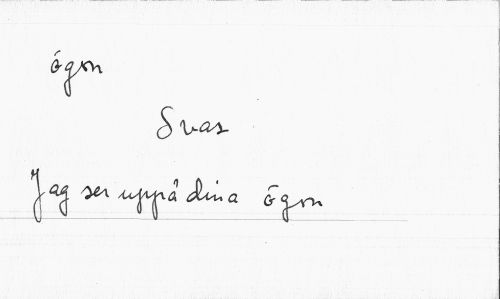 ögon
Svar
Jag ser uppå dina ögon